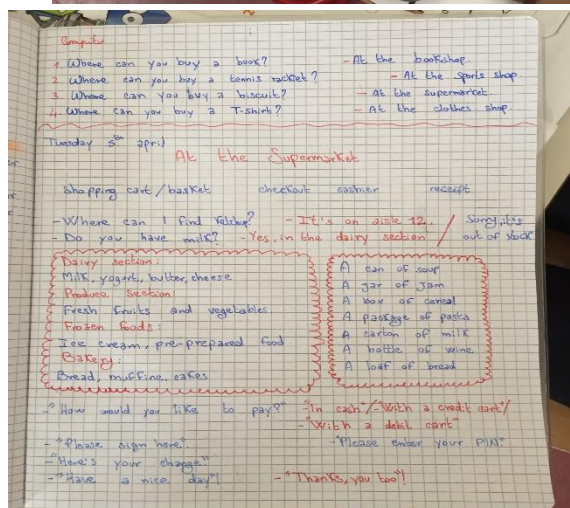 Computer
1. Where can you buy a book? - At the bookshop.
2. Where can you buy a tennis racket? - At the sports shop.
3. Where can you buy a biscuit? - At the supermarket.
4. Where can you buy a T-shirt? - At the clothes shop.
Tuesday 5th april
At the Supermarket
shopping cart / basket checkout cashier receipt
- Where can I find ketchup? - It's on aisle 12. / Sorry, it's
- Do you have milk? - Yes, in the dairy section / out of stock
Dairy section:
Milk, yogurt, butter, cheese
Produce section:
Fresh fruits and vegetables
Frozen foods:
Ice cream, pre-prepared food
Bakery:
Bread, muffine, cakes
A can of soup
A jar of jam
A box of cereal
A package of pasta
A carton of milk
A bottle of wine
A loaf of bread
- "How would you like to pay?" - "In cash" / - With a credit cart" /
- "With a debit cart"
- "Please sign here". - "Please enter your PIN."
- "Here's your change."
- "Have a nice day"! - "Thanks, you too"!